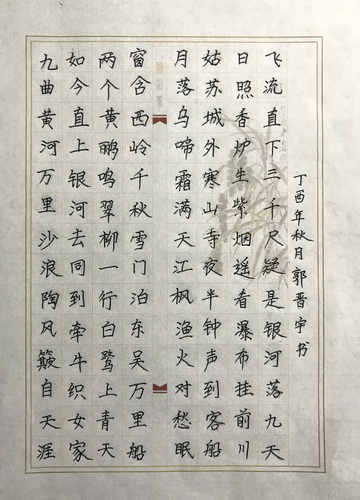 九曲黄河万里沙浪陶风簸自天涯
如今直上银河去同到牵牛织女家
两个黄鹂鸣翠柳一行白鹭上青天
窗含西岭千秋雪门泊东吴万里船
月落乌啼霜满天江枫渔火对愁眠
姑苏城外寒山寺夜半钟声到客船
日照香炉生紫烟遥看瀑布挂前川
飞流直下三千尺疑是银河落九天
丁酉年秋月郭晋宇书